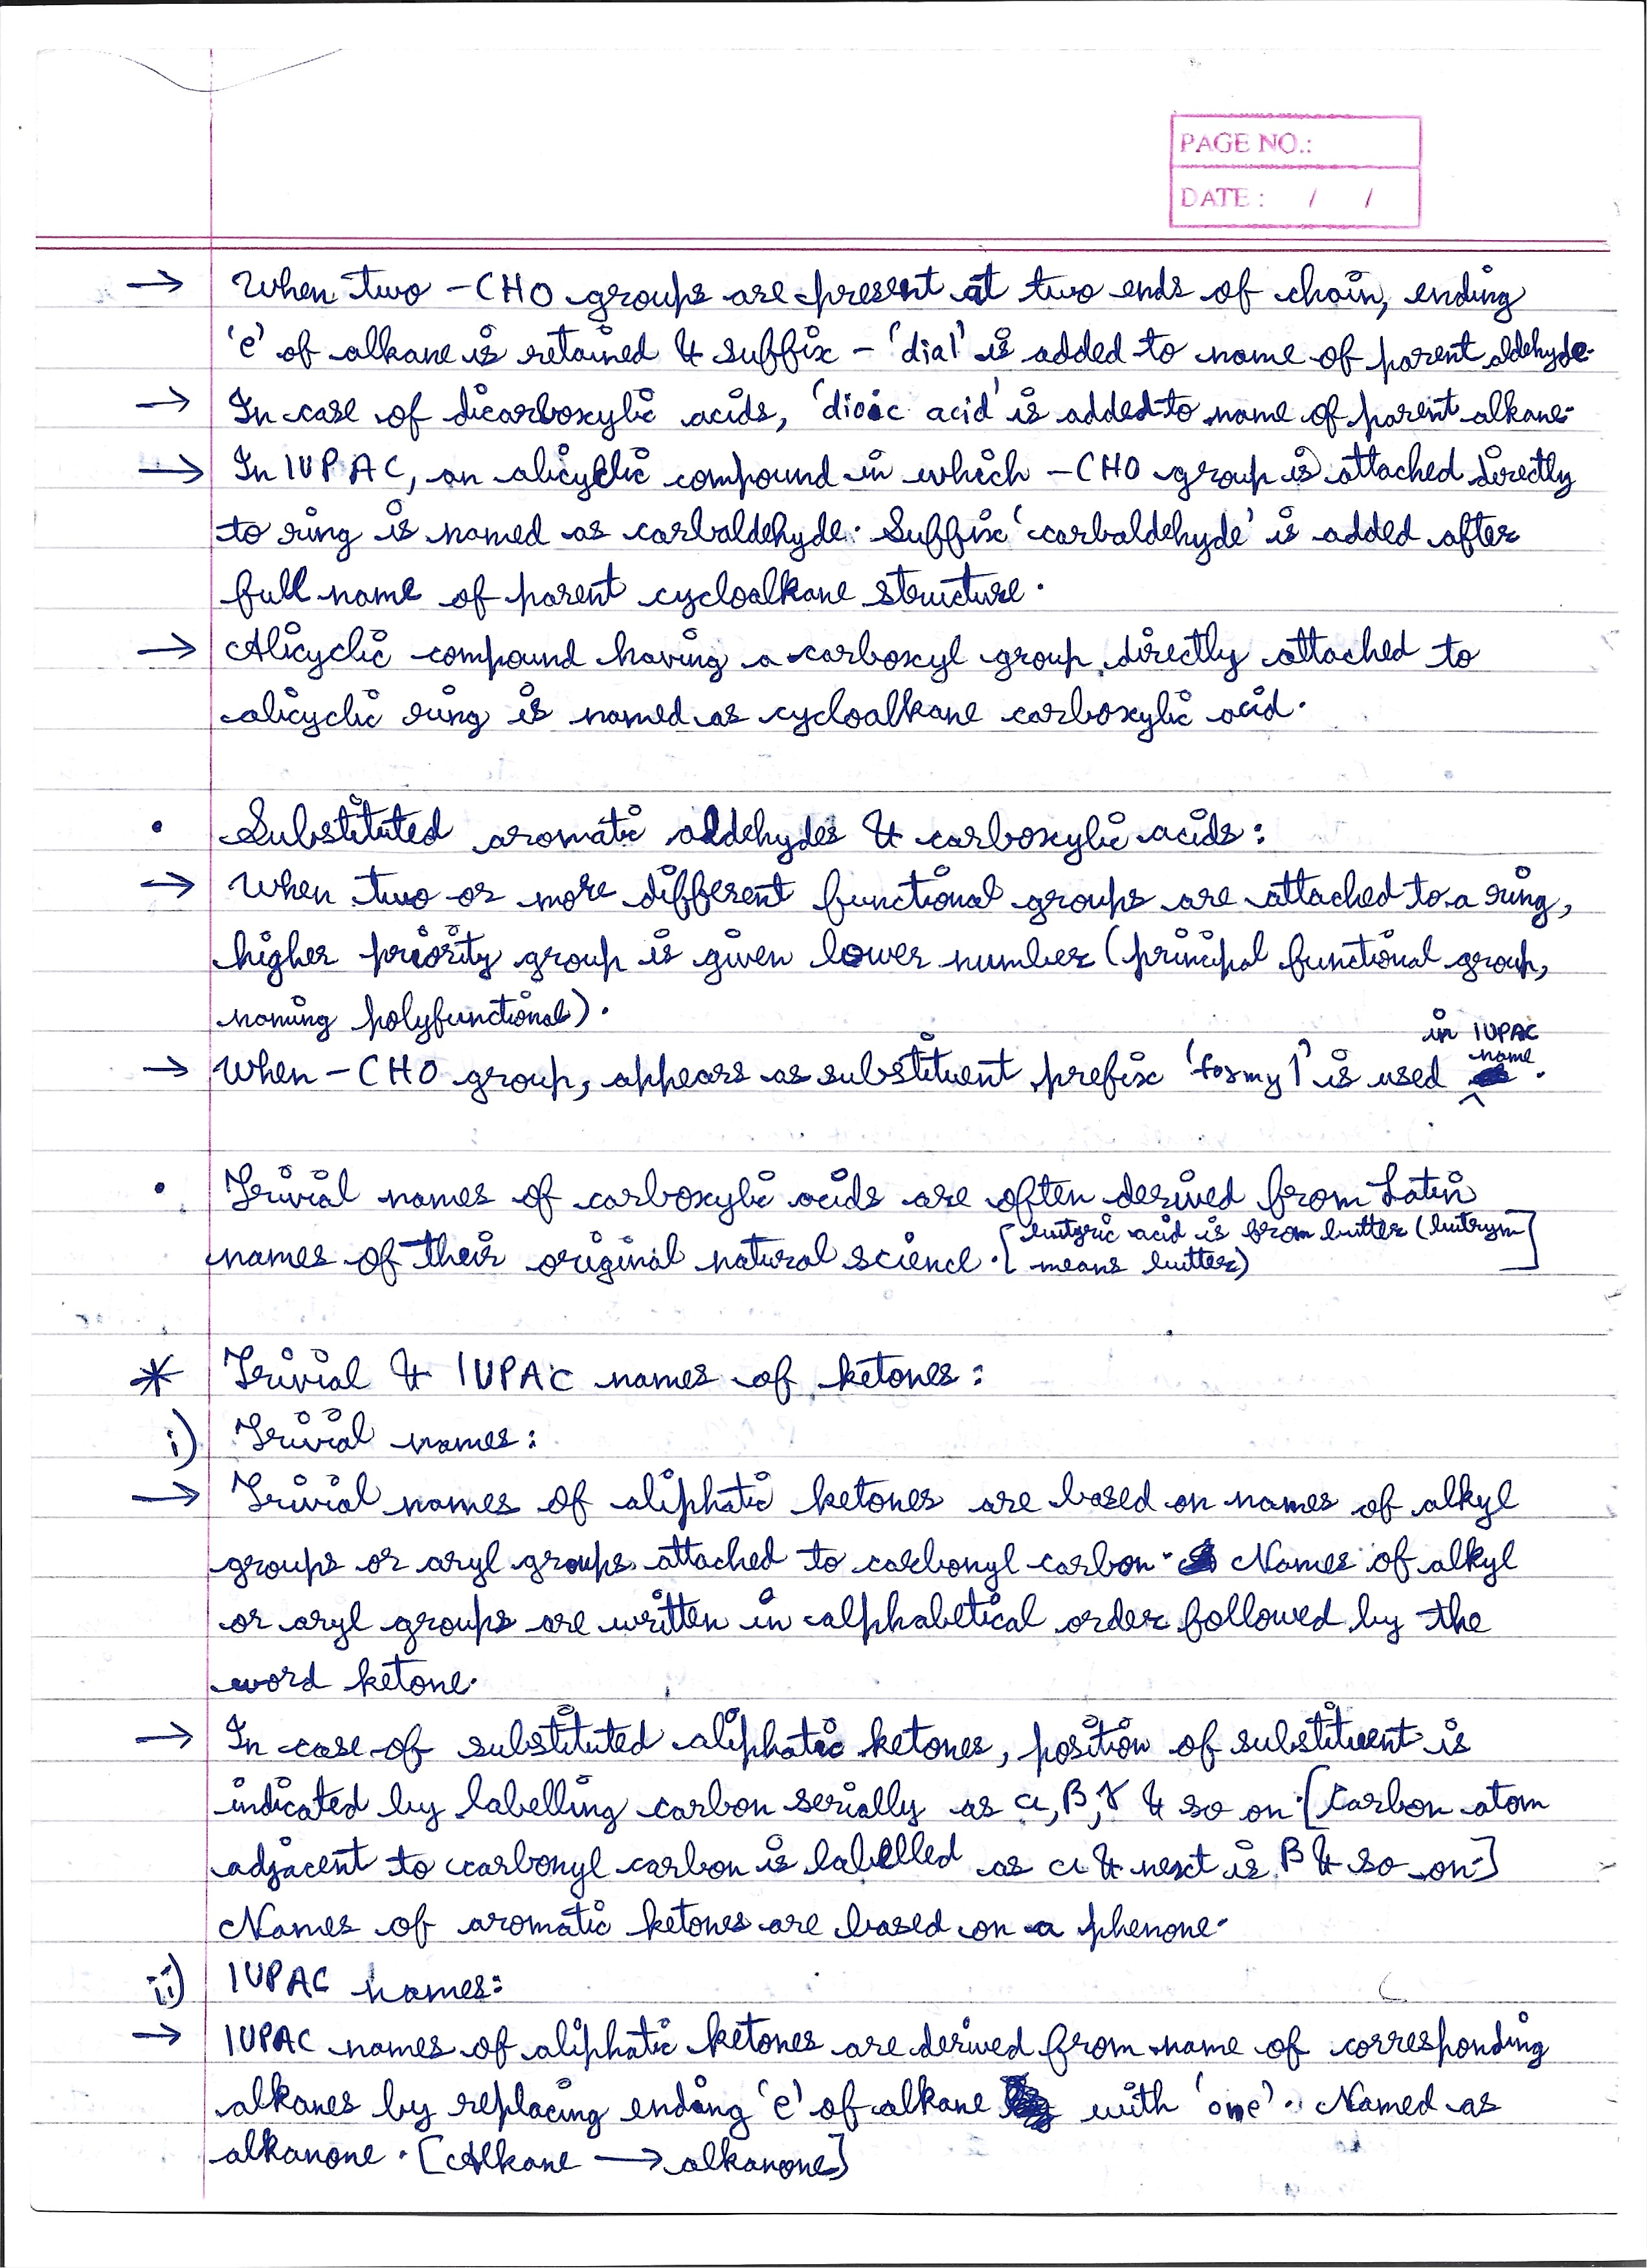 PAGE NO.:
DATE : / /
→ When two -CHO groups are present at two ends of chain, ending
'e' of alkane is retained & suffix - 'dial' is added to name of parent aldehyde.
→ In case of dicarboxylic acids, 'dioic acid' is added to name of parent alkane.
→ In IUPAC, an alicyclic compound in which -CHO group is attached directly
to ring is named as carbaldehyde. Suffix 'carbaldehyde' is added after
full name of parent cycloalkane structure.
→ Alicyclic compound having a carboxyl group directly attached to
alicyclic ring is named as cycloalkane carboxylic acid.
• Substituted aromatic aldehydes & carboxylic acids:
→ When two or more different functional groups are attached to a ring,
higher priority group is given lower number (principal functional group,
naming polyfunctional).
in IUPAC
→ When -CHO group, appears as substituent prefix 'formyl' is used name.
• Trivial names of carboxylic acids are often derived from Latin
names of their original natural science. [butyric acid is from butter (butrym
means butter)]
* Trivial & IUPAC names of ketones:
i) Trivial names:
→ Trivial names of aliphatic ketones are based on names of alkyl
groups or aryl groups attached to carbonyl carbon. Names of alkyl
or aryl groups are written in alphabetical order followed by the
word ketone.
→ In case of substituted aliphatic ketones, position of substituent is
indicated by labelling carbon serially as α, β, γ & so on. [Carbon atom
adjacent to carbonyl carbon is labelled as α & next is β & so on.]
Names of aromatic ketones are based on a phenone.
ii) IUPAC names:
→ IUPAC names of aliphatic ketones are derived from name of corresponding
alkanes by replacing ending 'e' of alkane with 'one'. Named as
alkanone. [Alkane → alkanone]